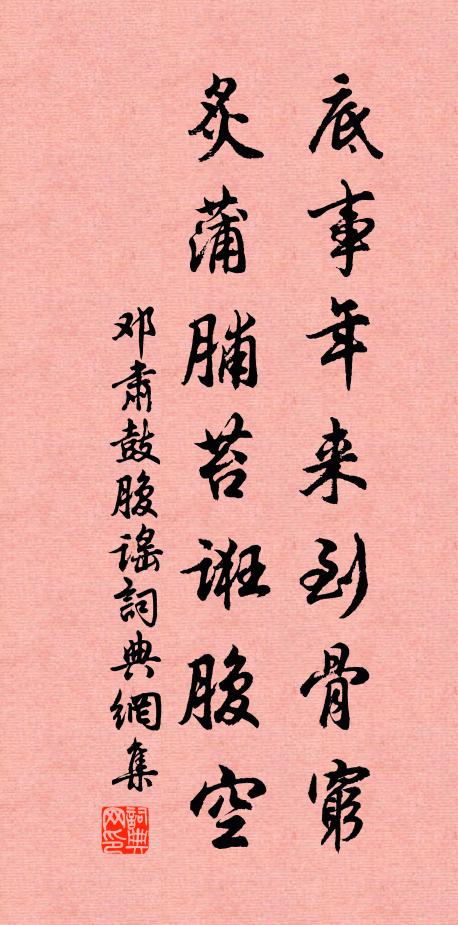 底事年来到骨窮
炙蒲脯苔誑腹空
邓肃鼓腹谣詞典網集
詞典网印